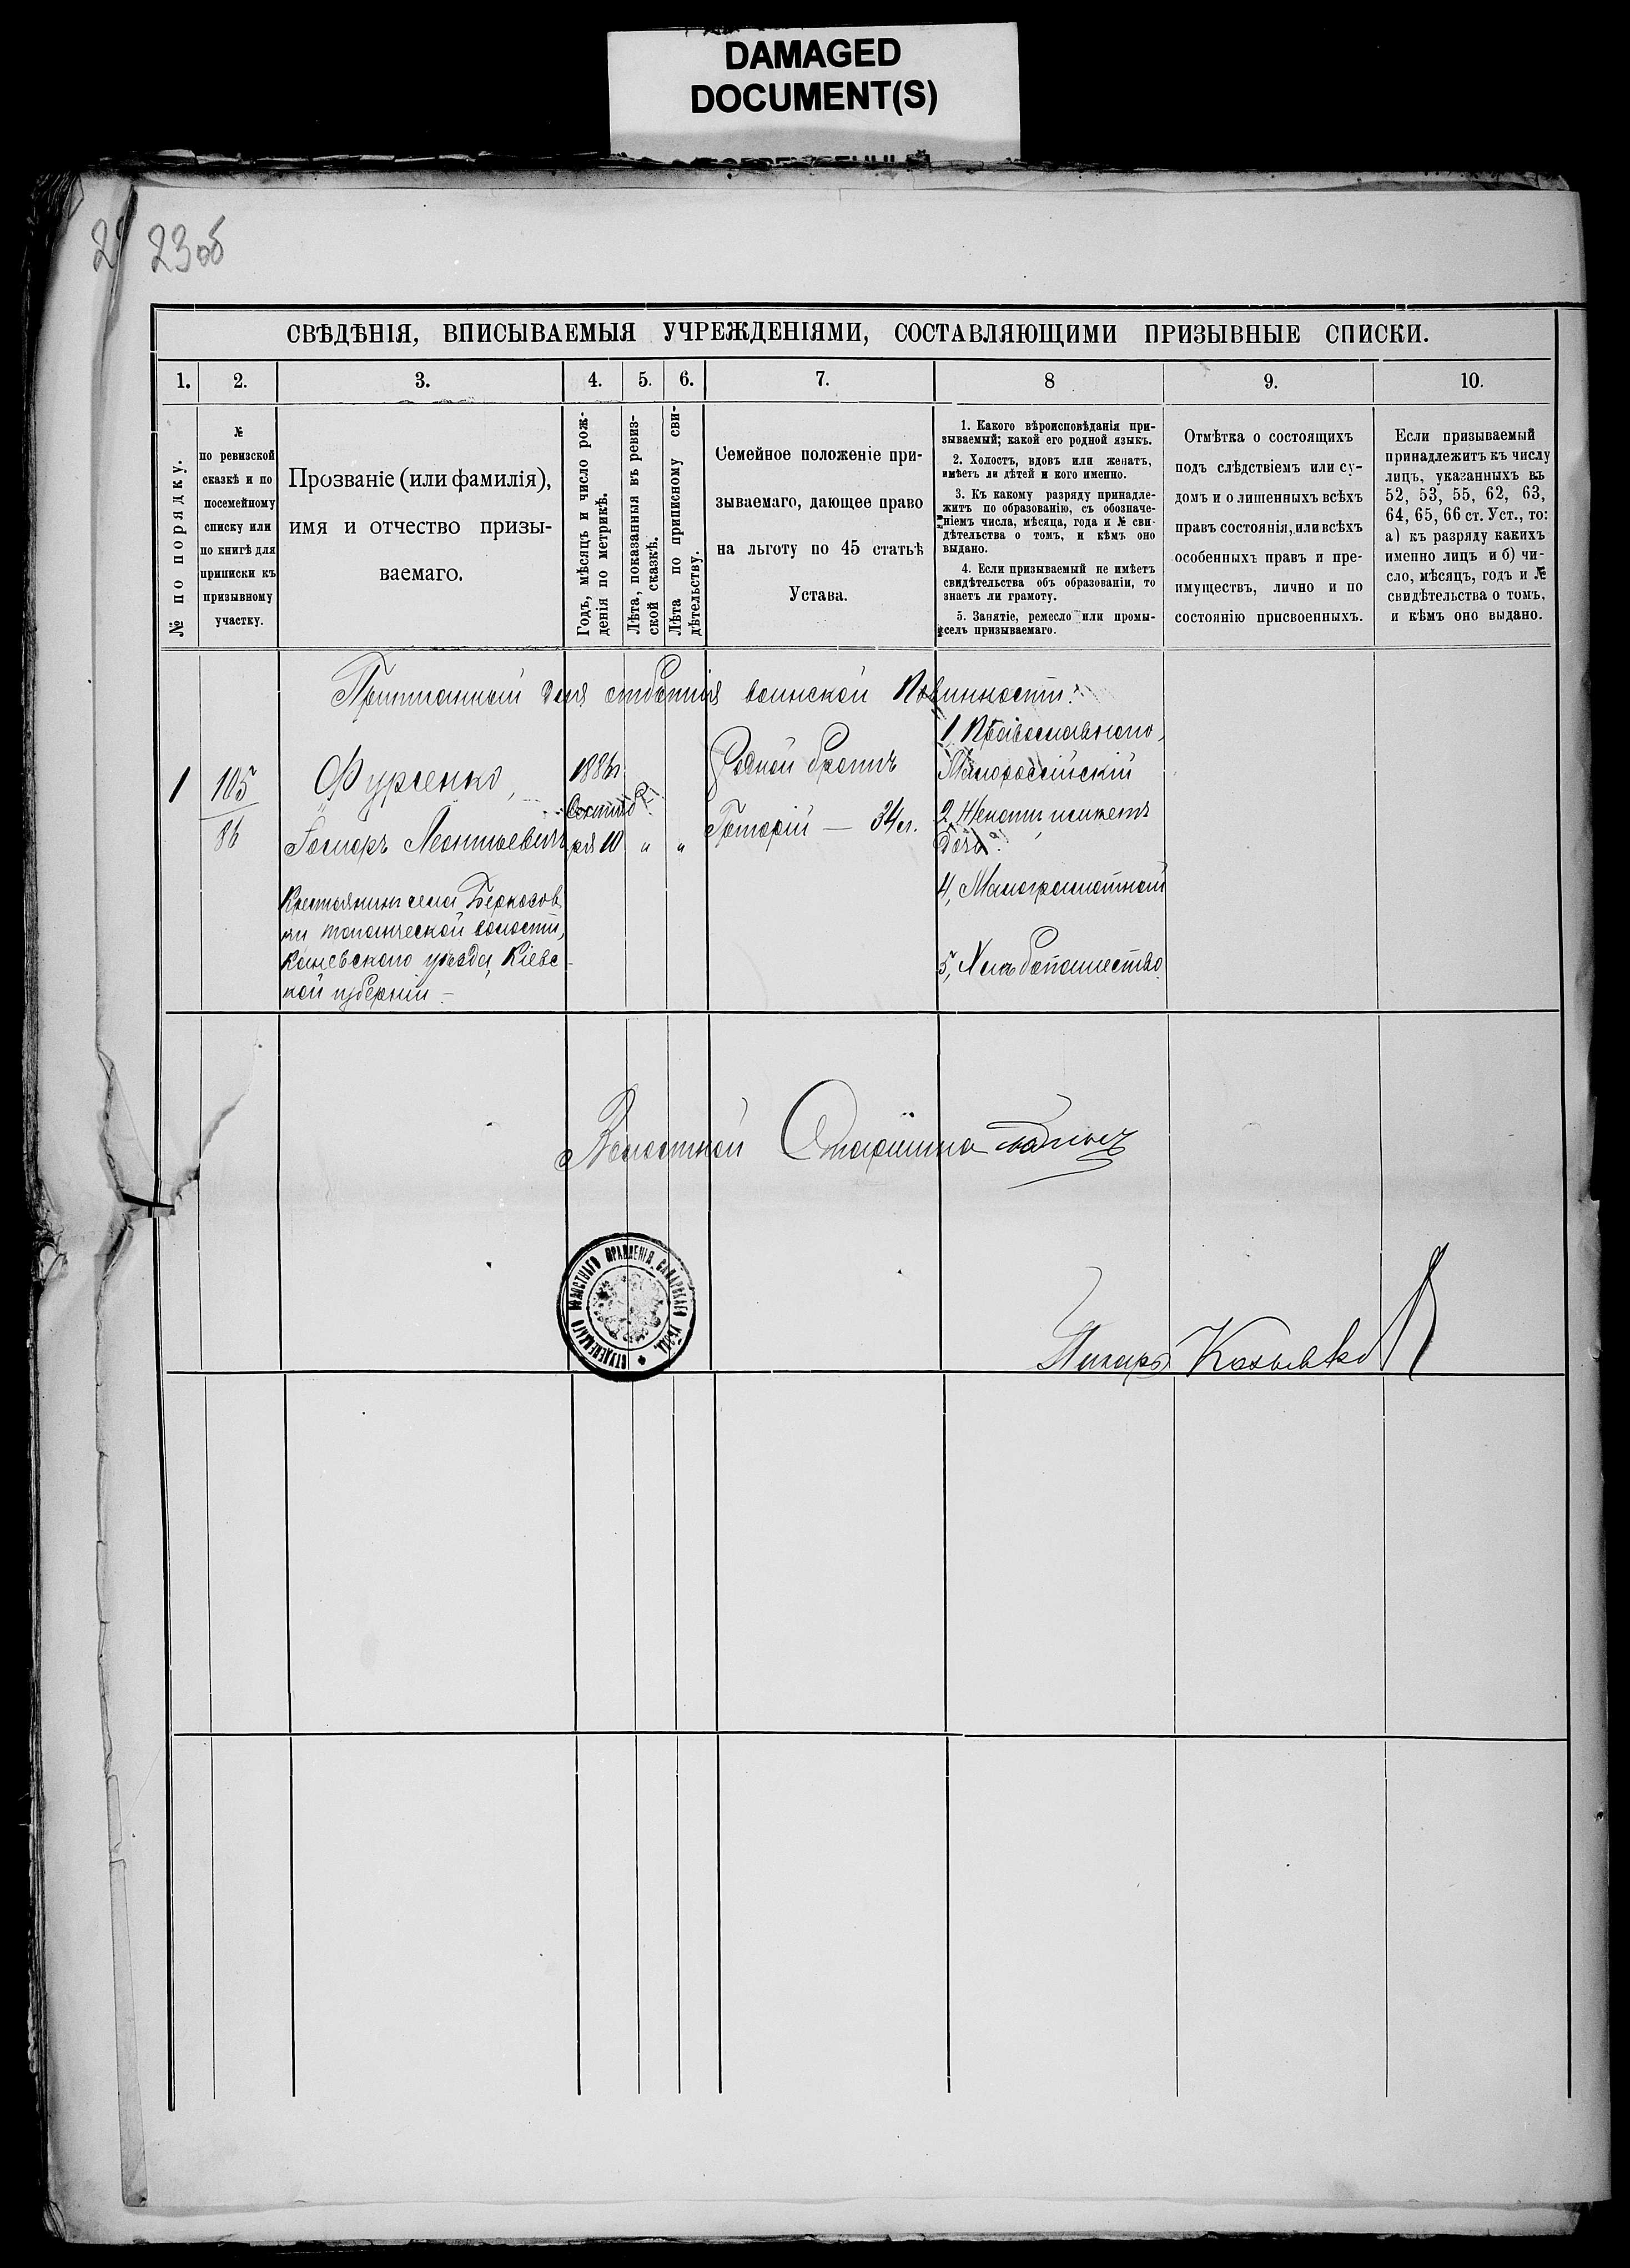 DAMAGED
DOCUMENT(S)
23об
СВѢДѢНІЯ, ВПИСЫВАЕМЫЯ УЧРЕЖДЕНІЯМИ, СОСТАВЛЯЮЩИМИ ПРИЗЫВНЫЕ СПИСКИ.
1. 2. 3. 4. 5. 6. 7. 8 9. 10.
№ по порядку.
№
по ревизской
сказкѣ и по
посемейному
списку или
по книгѣ для
приписки къ
призывному
участку.
Прозваніе (или фамилія),
имя и отчество призы-
ваемаго.
Годъ, мѣсяцъ и число рож-
денія по метрикѣ.
Лѣта, показанныя въ ревиз-
ской сказкѣ.
Лѣта по приписному сви-
дѣтельству.
Семейное положеніе при-
зываемаго, дающее право
на льготу по 45 статьѣ
Устава.
1. Какого вѣроисповѣданія при-
зываемый; какой его родной языкъ.
2. Холостъ, вдовъ или женатъ,
имѣетъ ли дѣтей и кого именно.
3. Къ какому разряду принадле-
житъ по образованію, съ обозначе-
ніемъ числа, мѣсяца, года и № сви-
дѣтельства о томъ, и кѣмъ оно
выдано.
4. Если призываемый не имѣетъ
свидѣтельства объ образованіи, то
знаетъ ли грамоту.
5. Занятіе, ремесло или промы-
селъ призываемаго.
Отмѣтка о состоящихъ
подъ слѣдствіемъ или су-
домъ и о лишенныхъ всѣхъ
правъ состоянія, или всѣхъ
особенныхъ правъ и пре-
имуществъ, лично и по
состоянію присвоенныхъ.
Если призываемый
принадлежитъ къ числу
лицъ, указанныхъ въ
52, 53, 55, 62, 63,
64, 65, 66 ст. Уст., то:
а) къ разряду какихъ
именно лицъ и б) чи-
сло, мѣсяцъ, годъ и №
свидѣтельства о томъ,
и кѣмъ оно выдано.
для отбытія воинской повинности.
1
105
86
Фурсенко,
Леонтьевичъ
Крестьянинъ села Беркозов
ки волости,
Каневскаго уѣзда, Кіевс
кой губерніи
1886г.
Сентяб
ря 10
" "
Родной братъ
Григорій — 34 л.
1. Православнаго,
Малороссійскій
2, Женатъ имѣетъ
дочь
4, Малограмотный
5, Хлѣбопашество
Волостной Старшина
СТУДЕНЕЦКАГО ВОЛОСТНАГО ПРАВЛЕНІЯ, САМАРСКАГО УѢЗДА.
Писарь